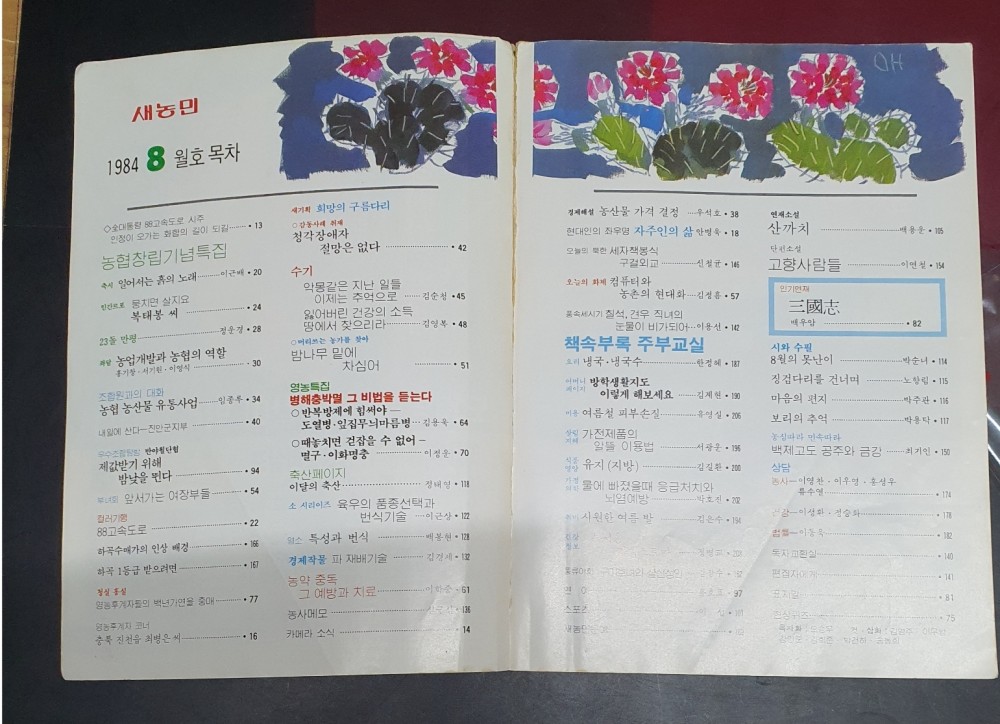 새농민
1984 8 월호 목차
◇全대통령 88고속도로 시주
인정이 오가는 화합의 길이 되길 • 13
농협창립기념특집
축시 일어서는 흙의 노래 이근배 • 20
민간인터뷰 뭉치면 살지요
복태봉 씨 • 24
23돌 만평 정운경 • 28
좌담 농업개발과 농협의 역할
홍기창·서기원·이영식 • 30
조합원과의 대화
농협 농산물 유통사업 임종두 • 34
내일에 산다—진안군지부 • 40
우수조합탐방 반야월단협
제값받기 위해
밤낮을 뛴다 • 94
부녀회 앞서가는 여장부들 • 54
컬러기행
88고속도로 • 22
하곡수매가의 인상 배경 • 166
하곡 1등급 받으려면 • 167
정실 통실
영농후계자들의 백년가연을 중매 • 77
영농후계자 코너
충북 진천읍 최병은 씨 • 16
새기획 희망의 구름다리
○감동사례 취재
청각장애자
절망은 없다 • 42
수기
악몽같은 지난 일들
이제는 추억으로 김순성 • 45
잃어버린 건강의 소득
땅에서 찾으리라 김영복 • 48
밤나무 밑에
차심어 • 51
영농특집
병해충박멸 그 비법을 듣는다
○반복방제에 힘써야—
도열병·잎집무늬마름병 김용욱 • 64
○때놓치면 걷잡을 수 없어—
멸구·이화명충 이정운 • 70
축산페이지
이달의 축산 정태영 • 118
소 시리이즈 육우의 품종선택과
번식기술 이근상 • 122
염소 특성과 번식 배봉현 • 128
경제작물 피 재배기술 김길세 • 132
농약 중독
그 예방과 치료 • 61
농사메모 • 136
카메라 소식 • 14
경제해설 농산물 가격 결정 우석호 • 38
현대인의 좌우명 자주인의 삶 안병욱 • 18
오늘의 북한 세자책봉식
구걸외교 신정균 • 146
오늘의 화제 컴퓨터와
농촌의 현대화 김정흠 • 57
풍속세시기 칠석, 견우 직녀의
눈물이 비가되어 이용선 • 142
책속부록 주부교실
요리 냉국·냉국수 한정혜 • 187
어머니 페이지 방학생활지도
이렇게 해보세요 김계현 • 190
미용 여름철 피부손질 유영실 • 206
살림지혜 가전제품의
알뜰 이용법 서광운 • 196
식품영양 유지(지방) 김길환 • 200
가정의학 물에 빠졌을때 응급처치와
뇌염예방 박호진 • 202
시원한 여름 방 김은수 • 194
스포츠
연재소설
산까치 배봉운 • 105
단편소설
고향사람들 이연철 • 154
인기연재
三國志
배우암 • 82
시와 수필
8월의 못난이 박순녀 • 114
징검다리를 건너며 노향림 • 115
마음의 편지 박주관 • 116
보리의 추억 박용탁 • 117
농심따라 민속따라
백제고도 공주와 금강 최기인 • 150
상담
농사 이영찬·이우영·홍성우
류수열 • 174
건강 이성화·전승화 • 178
법률 이동욱 • 182
독자교환실 • 140
편집자에게 • 141
표지설 • 81
건강퀴즈 • 75